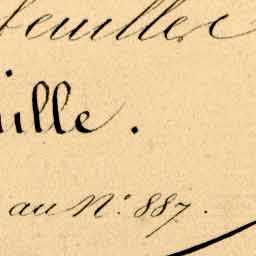 feuilles
ille.
au N.° 887.